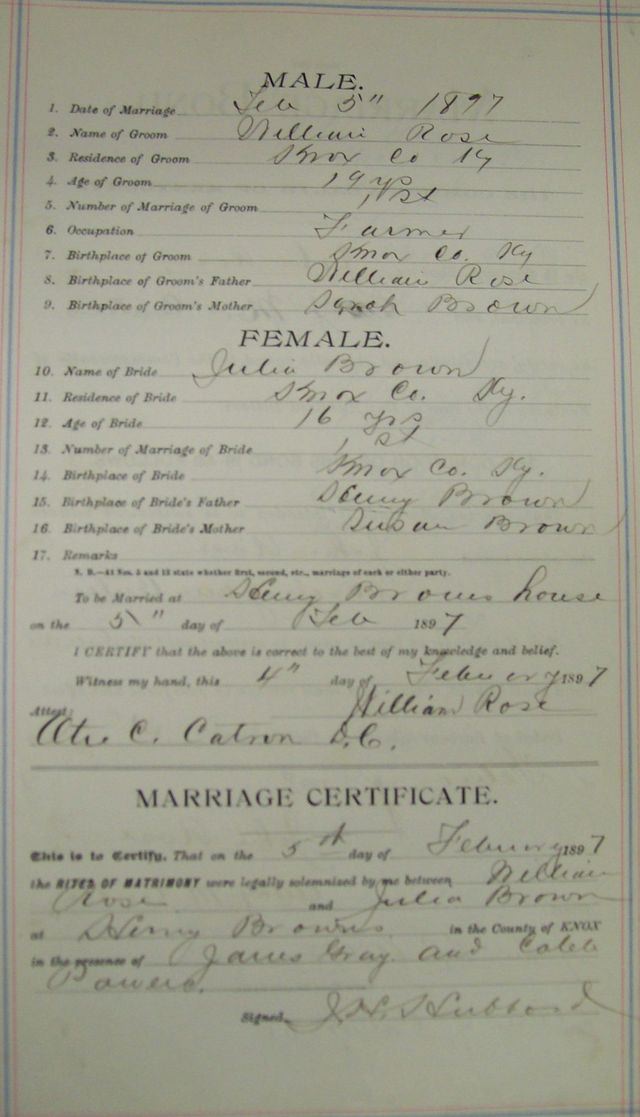 MALE.
1. Date of Marriage Feb 5" 1897
2. Name of Groom William Rose
3. Residence of Groom Knox Co Ky
4. Age of Groom 19 yrs
5. Number of Marriage of Groom 1st
6. Occupation Farmer
7. Birthplace of Groom Knox Co. Ky
8. Birthplace of Groom's Father William Rose
9. Birthplace of Groom's Mother Sarah Brown
FEMALE.
10. Name of Bride Julia Brown
11. Residence of Bride Knox Co. Ky.
12. Age of Bride 16 yrs
13. Number of Marriage of Bride 1st
14. Birthplace of Bride Knox Co. Ky.
15. Birthplace of Bride's Father Henry Brown
16. Birthplace of Bride's Mother Susan Brown
17. Remarks
N. B.—At Nos. 5 and 13 state whether first, second, etc., marriage of each or either party.
To be Married at Henry Browns house
on the 5" day of Feb 1897
I CERTIFY that the above is correct to the best of my knowledge and belief.
Witness my hand, this 4" day of Februory 1897
William Rose
Attest:
C. Catron D.C.
MARRIAGE CERTIFICATE.
This is to Certify, That on the 5th day of Februory 1897
the RITES OF MATRIMONY were legally solemnized by me between William
Rose and Julia Brown
at Henry Browns in the County of KNOX
in the presence of James Gray and Caleb
Powers.
Signed Hubbard